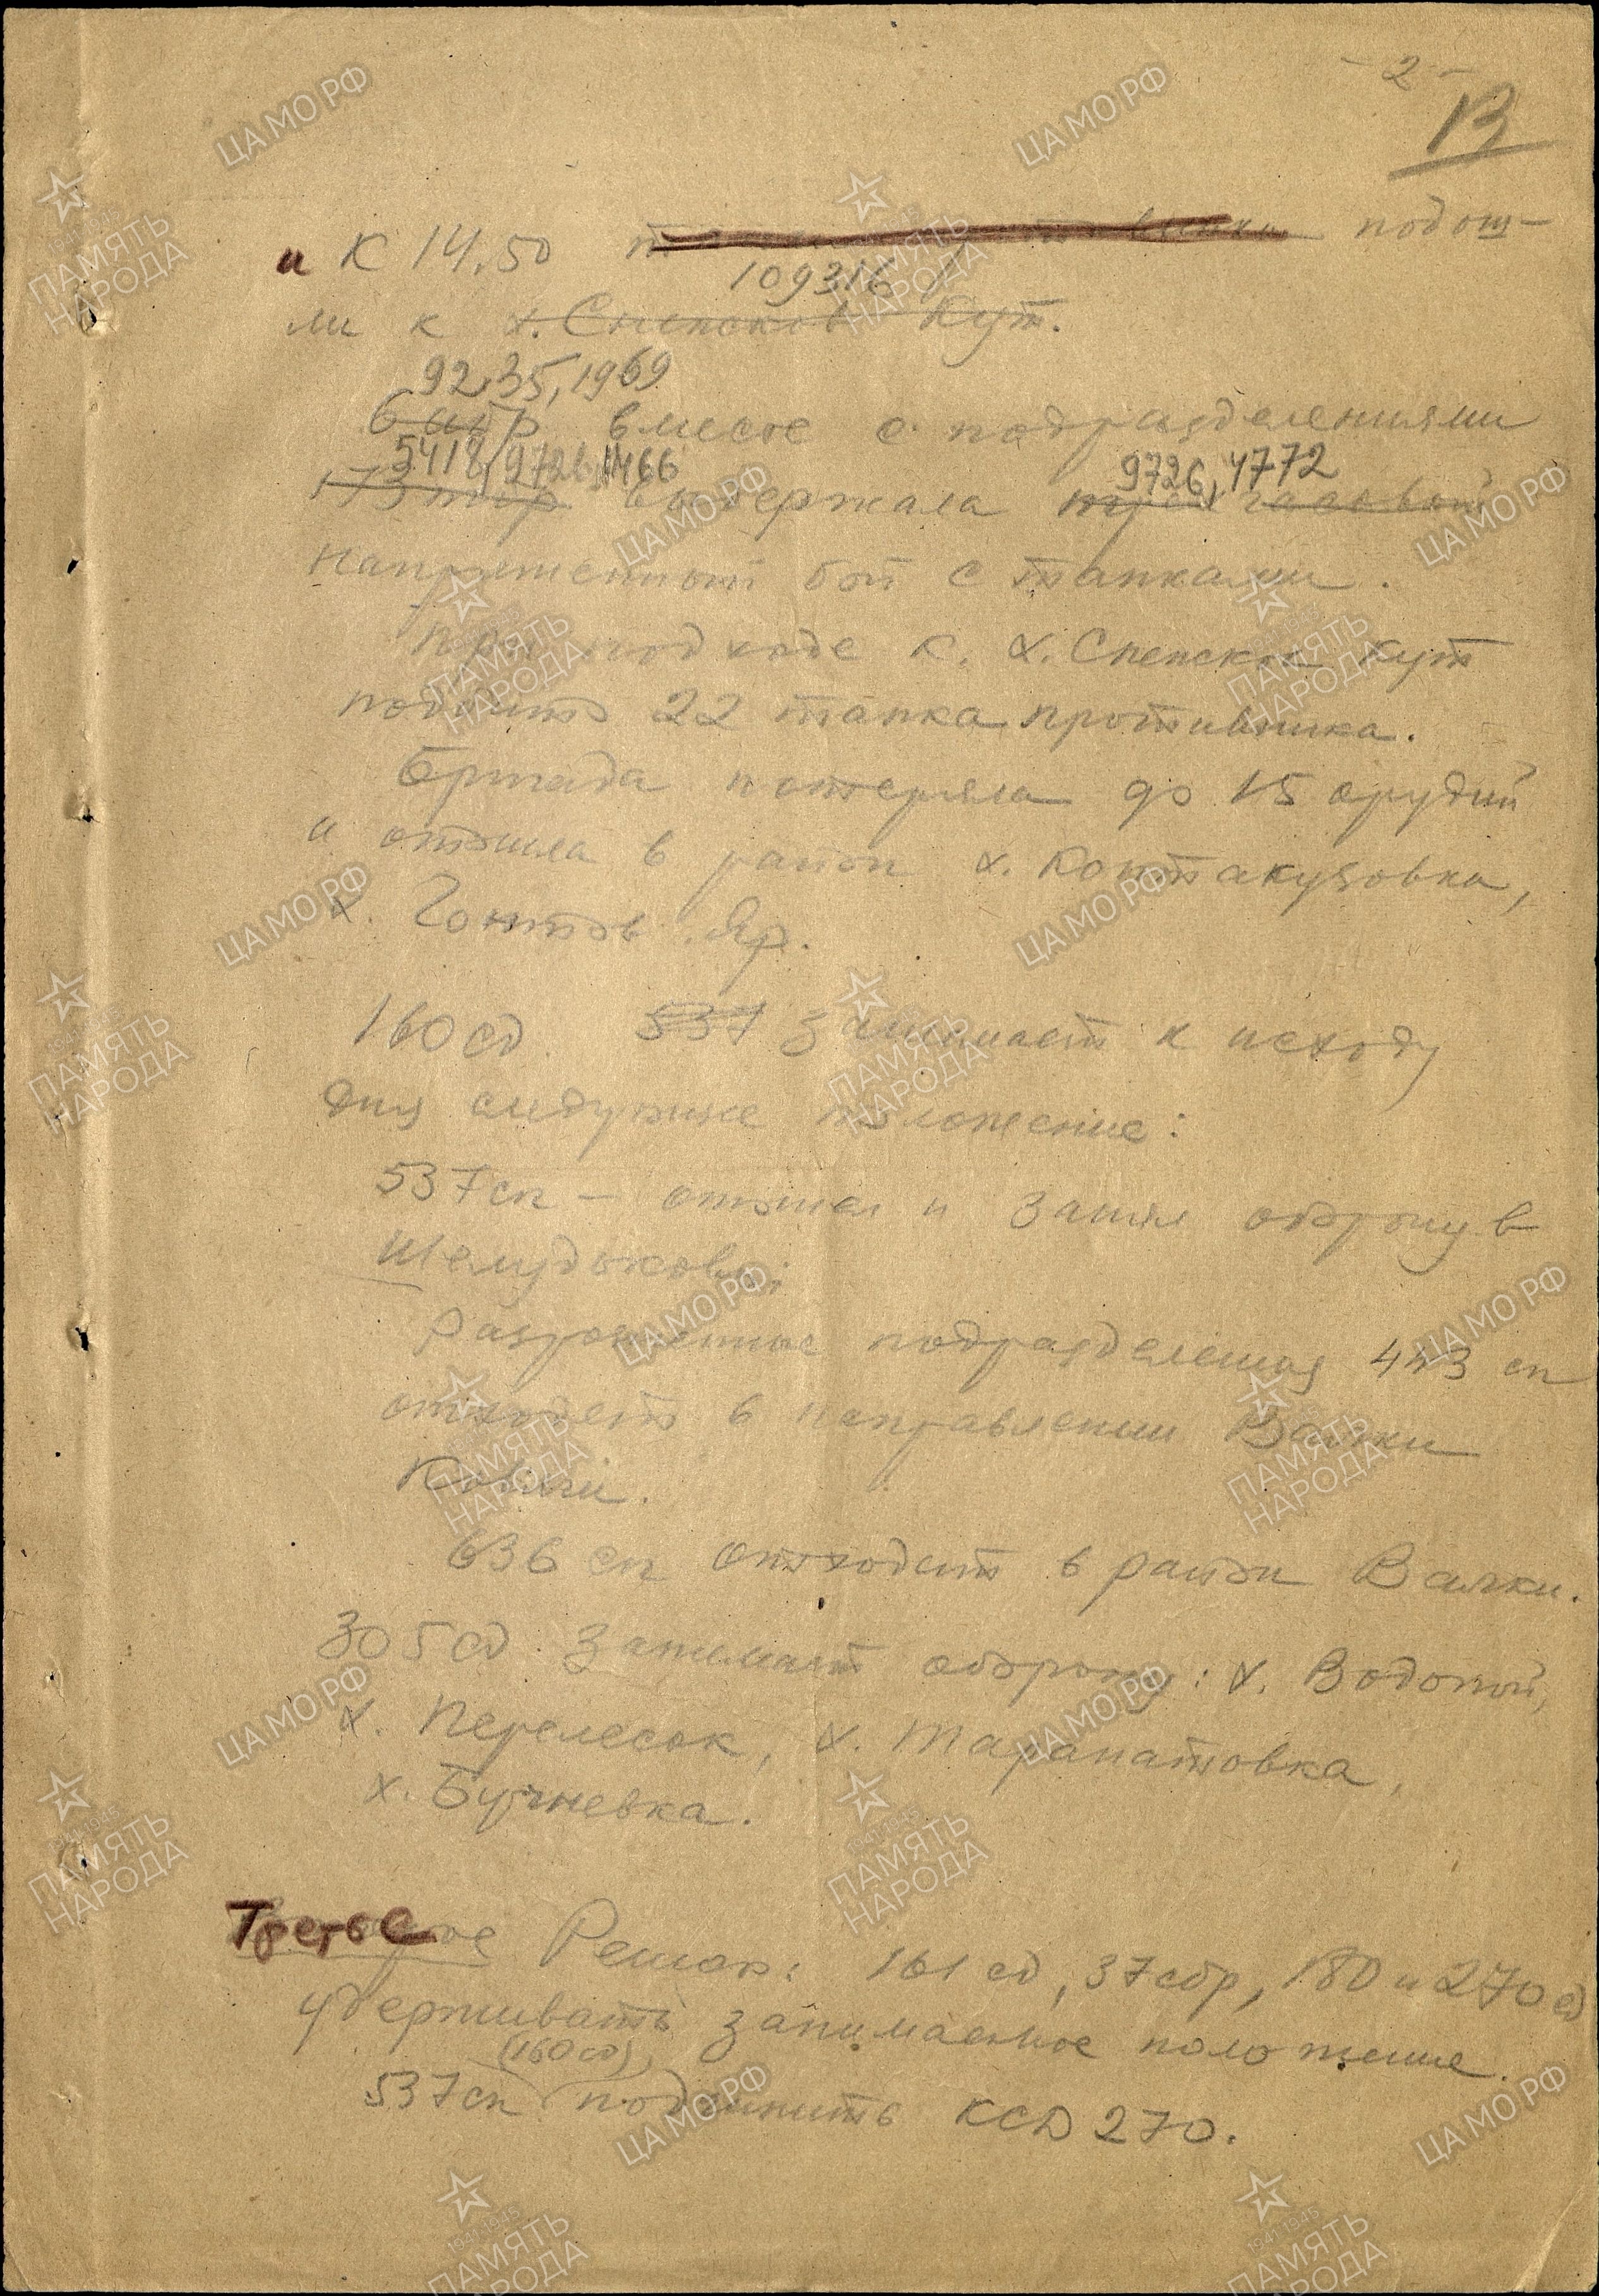 - 2 -
13
и К 14.50 подош-
109316
ли к х. Снепсков Кут.
9235, 1969
6 иптбр вместе с подразделениями
5418, 9726, 1466
9726, 4772
выдержала
напряженный бой с танками.
При подходе к х. Снепсков Кут
подбито 22 танка противника.
Бригада потеряла до 15 орудий
и отошла в район х. Контакузовка,
х. Гонтов Яр.
160 сд 537 занимает к исходу
дня следующее положение:
537 сп – отошел и занял оборону в
Шелудьковый
Разрозненные подразделения 443 сп
отходят в направлении Валки
Ковяги.
636 сп отходит в район Валки.
305 сд занимает оборону: х. Водопой,
х. Перелесок, х. Таранатовка,
х. Бугневка.
Третье Решил: 161 сд, 37 сбр, 180 и 270 сд
удерживать занимаемое положение.
(160 сд)
537 сп подчинить КСД 270.
ЦАМО РФ
ПАМЯТЬ НАРОДА
1941-1945